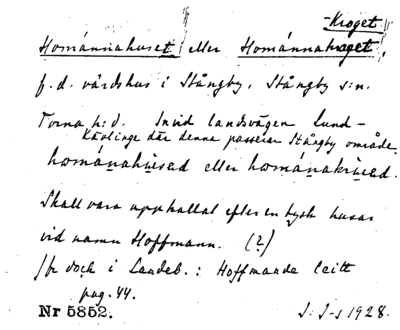 -Kroget
Homännahuset eller Homännakroget,
f.d. värdshus i Stångby, Stångby s:n.
Torna h:d. Invid landsvägen Lund-
Kävlinge där denna passerar Stångby område.
hománahused eller hománakrused.
Skall vara uppkallat efter en tysk husar
vid namn Hoffmann. (?)
Jfr dock i Landeb.: Hoffmande leitt
pag. 44.
Nr 5852. J. I-s 1928.